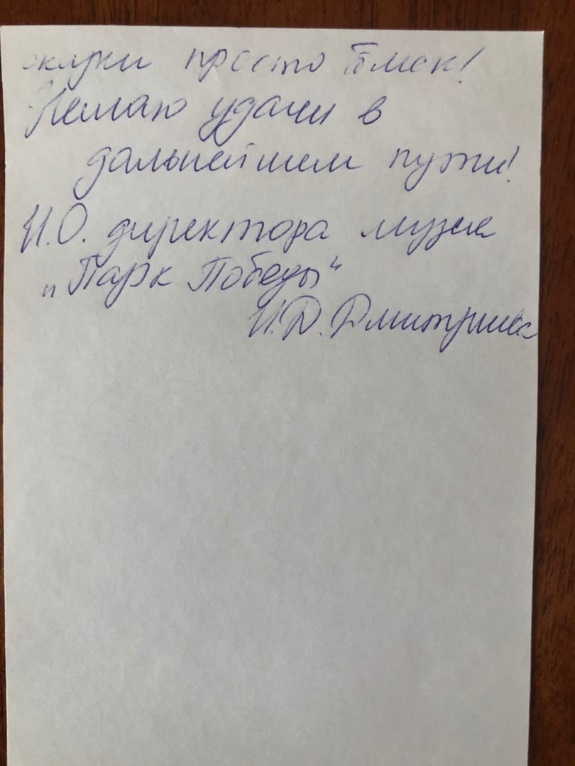 просто
Желаю удачи в
дальнейшем пути!
И.О. директора музея
„Парк Победы“
И.В. Дмитриева